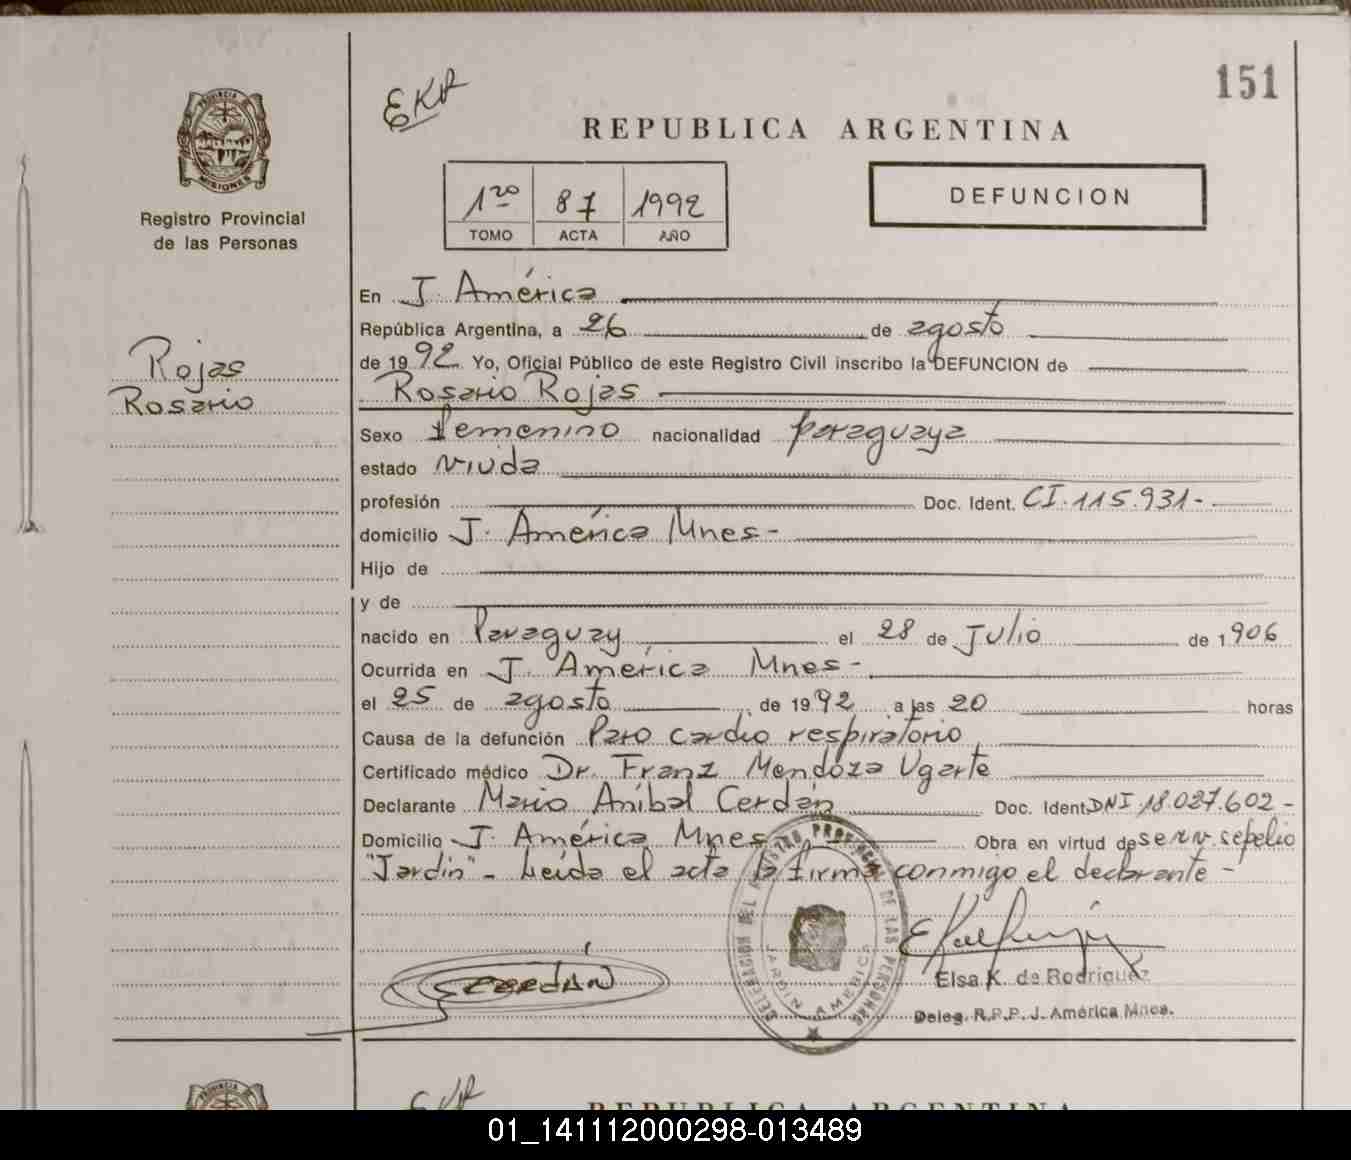 151
EKR
REPUBLICA ARGENTINA
PROVINCIA DE
MISIONES
Registro Provincial
de las Personas
1ro 87 1992
TOMO ACTA AÑO
DEFUNCION
Rojas
Rosario
En J. América
República Argentina, a 26 de agosto
de 1992. Yo, Oficial Público de este Registro Civil inscribo la DEFUNCION de
Rosario Rojas
Sexo femenino nacionalidad paraguaya
estado viuda
profesión Doc. Ident. CI. 115.931-
domicilio J. América Mnes-
Hijo de
y de
nacido en Paraguay el 28 de Julio de 1906
Ocurrida en J. América Mnes-
el 25 de agosto de 1992 a las 20 horas
Causa de la defunción Paro cardio respiratorio
Certificado médico Dr. Franz Mendoza Ugarte
Declarante Mario Aníbal Cerdán Doc. Ident. DNI 18.027.602-
Domicilio J. América Mnes- Obra en virtud de serv. sepelio
"Jardin"- Leída el acta la firma conmigo el declarante-
DELEGACION DEL REGISTRO PROVINCIAL DE LAS PERSONAS
JARDIN AMERICA
CERDÁN
Elsa K. de Rodriguez
Deleg. R.P.P. J. América Mnes.
PROVINCIA DE
EKR
REPUBLICA ARGENTINA
01_141112000298-013489